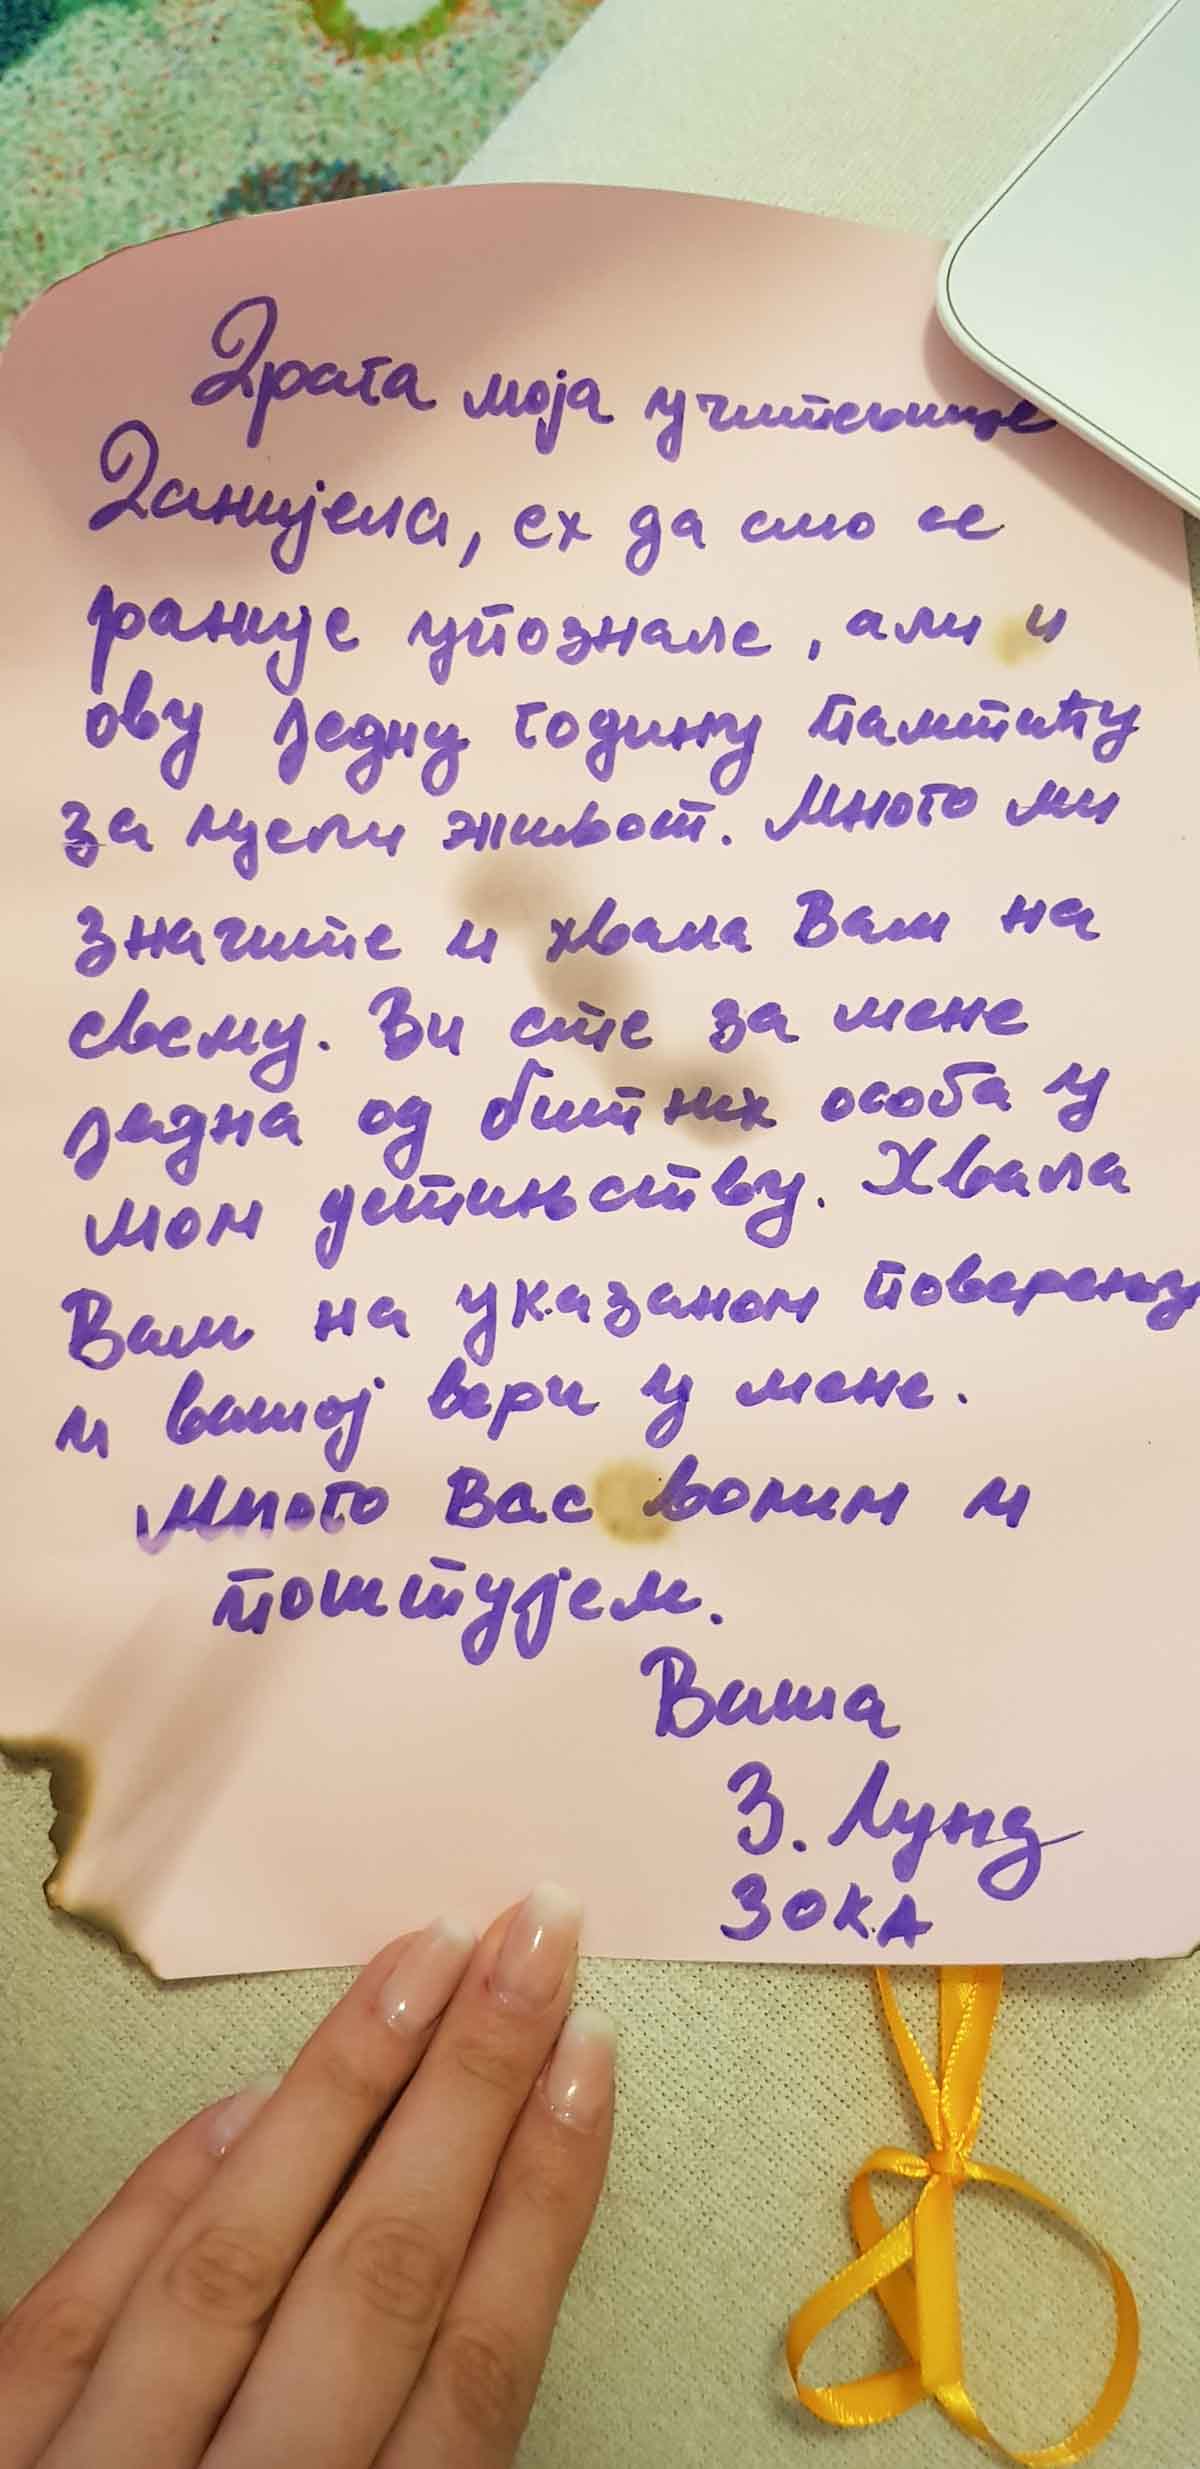 Драга моја учитељице
Данијела, ех да смо се
раније упознале, али и
ову једну годину памтићу
за цели живот. Много ми
значите и хвала Вам на
свему. Ви сте за мене
једна од битних особа у
мом детињству. Хвала
Вам на указаном поверењу
и вашој вери у мене.
Много Вас волим и
поштујем.
Ваша
З. Лунд
ЗОКА